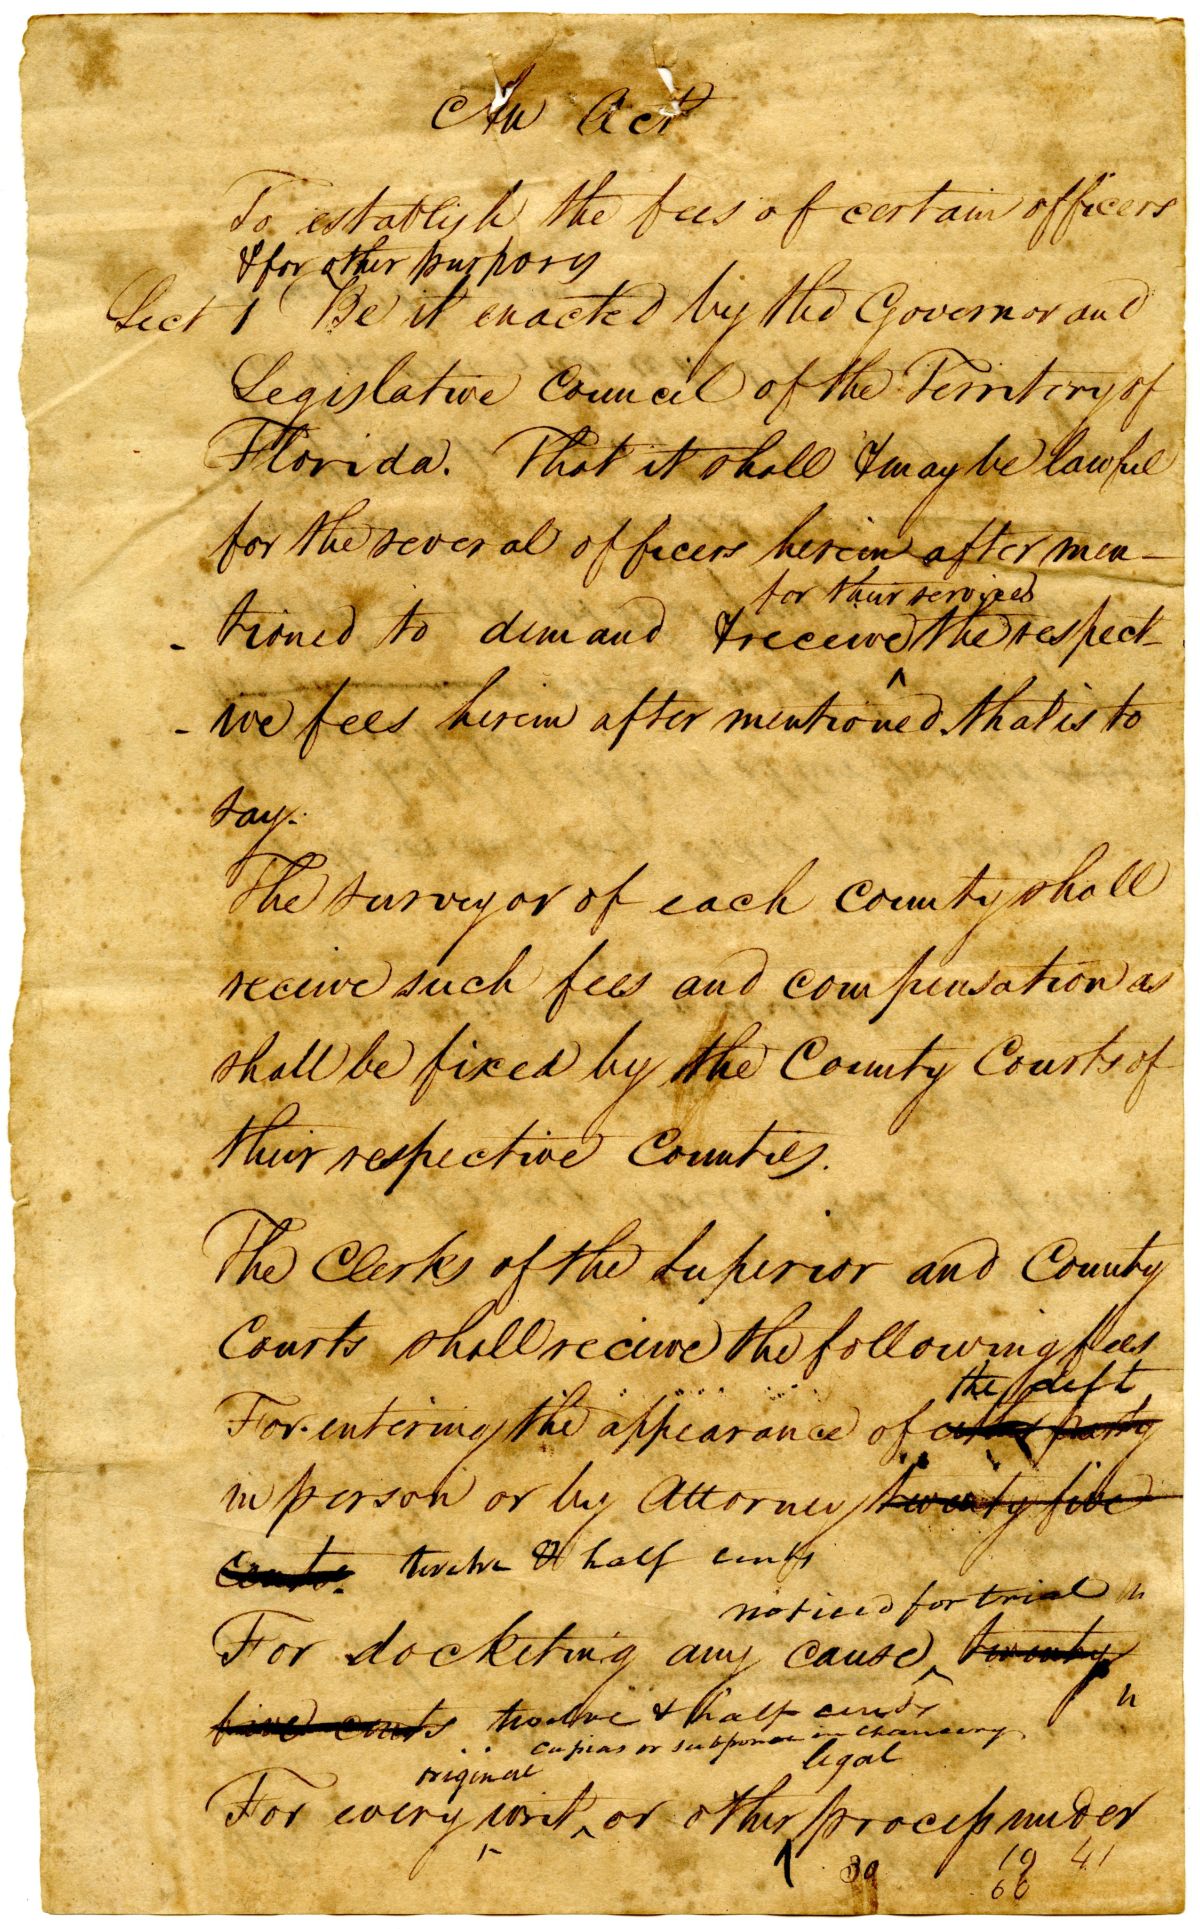 An Act
To establish the fees of certain officers
& for other purposes
Sect 1 Be it enacted by the Governor and
Legislative Council of the Territory of
Florida. That it shall & may be lawful
for the several officers herein after men-
for their services
- tioned to demand & receive ^ the respect-
- ive fees herein after mentioned. that is to
say.
The surveyor of each county shall
receive such fees and compensation as
shall be fixed by the County Courts of
their respective Counties.
The Clerks of the Superior and County
Courts shall receive the following fees
the deft
For entering the appearance of either party
in person or by Attorney twenty five
cents. twelve & half cents
noticed for trial "
For docketing any cause ^ twenty
five cents twelve & half cents "
capias or subpoena in chancery
original legal
For every writ ^ or other ^ process under
39 19 41
60